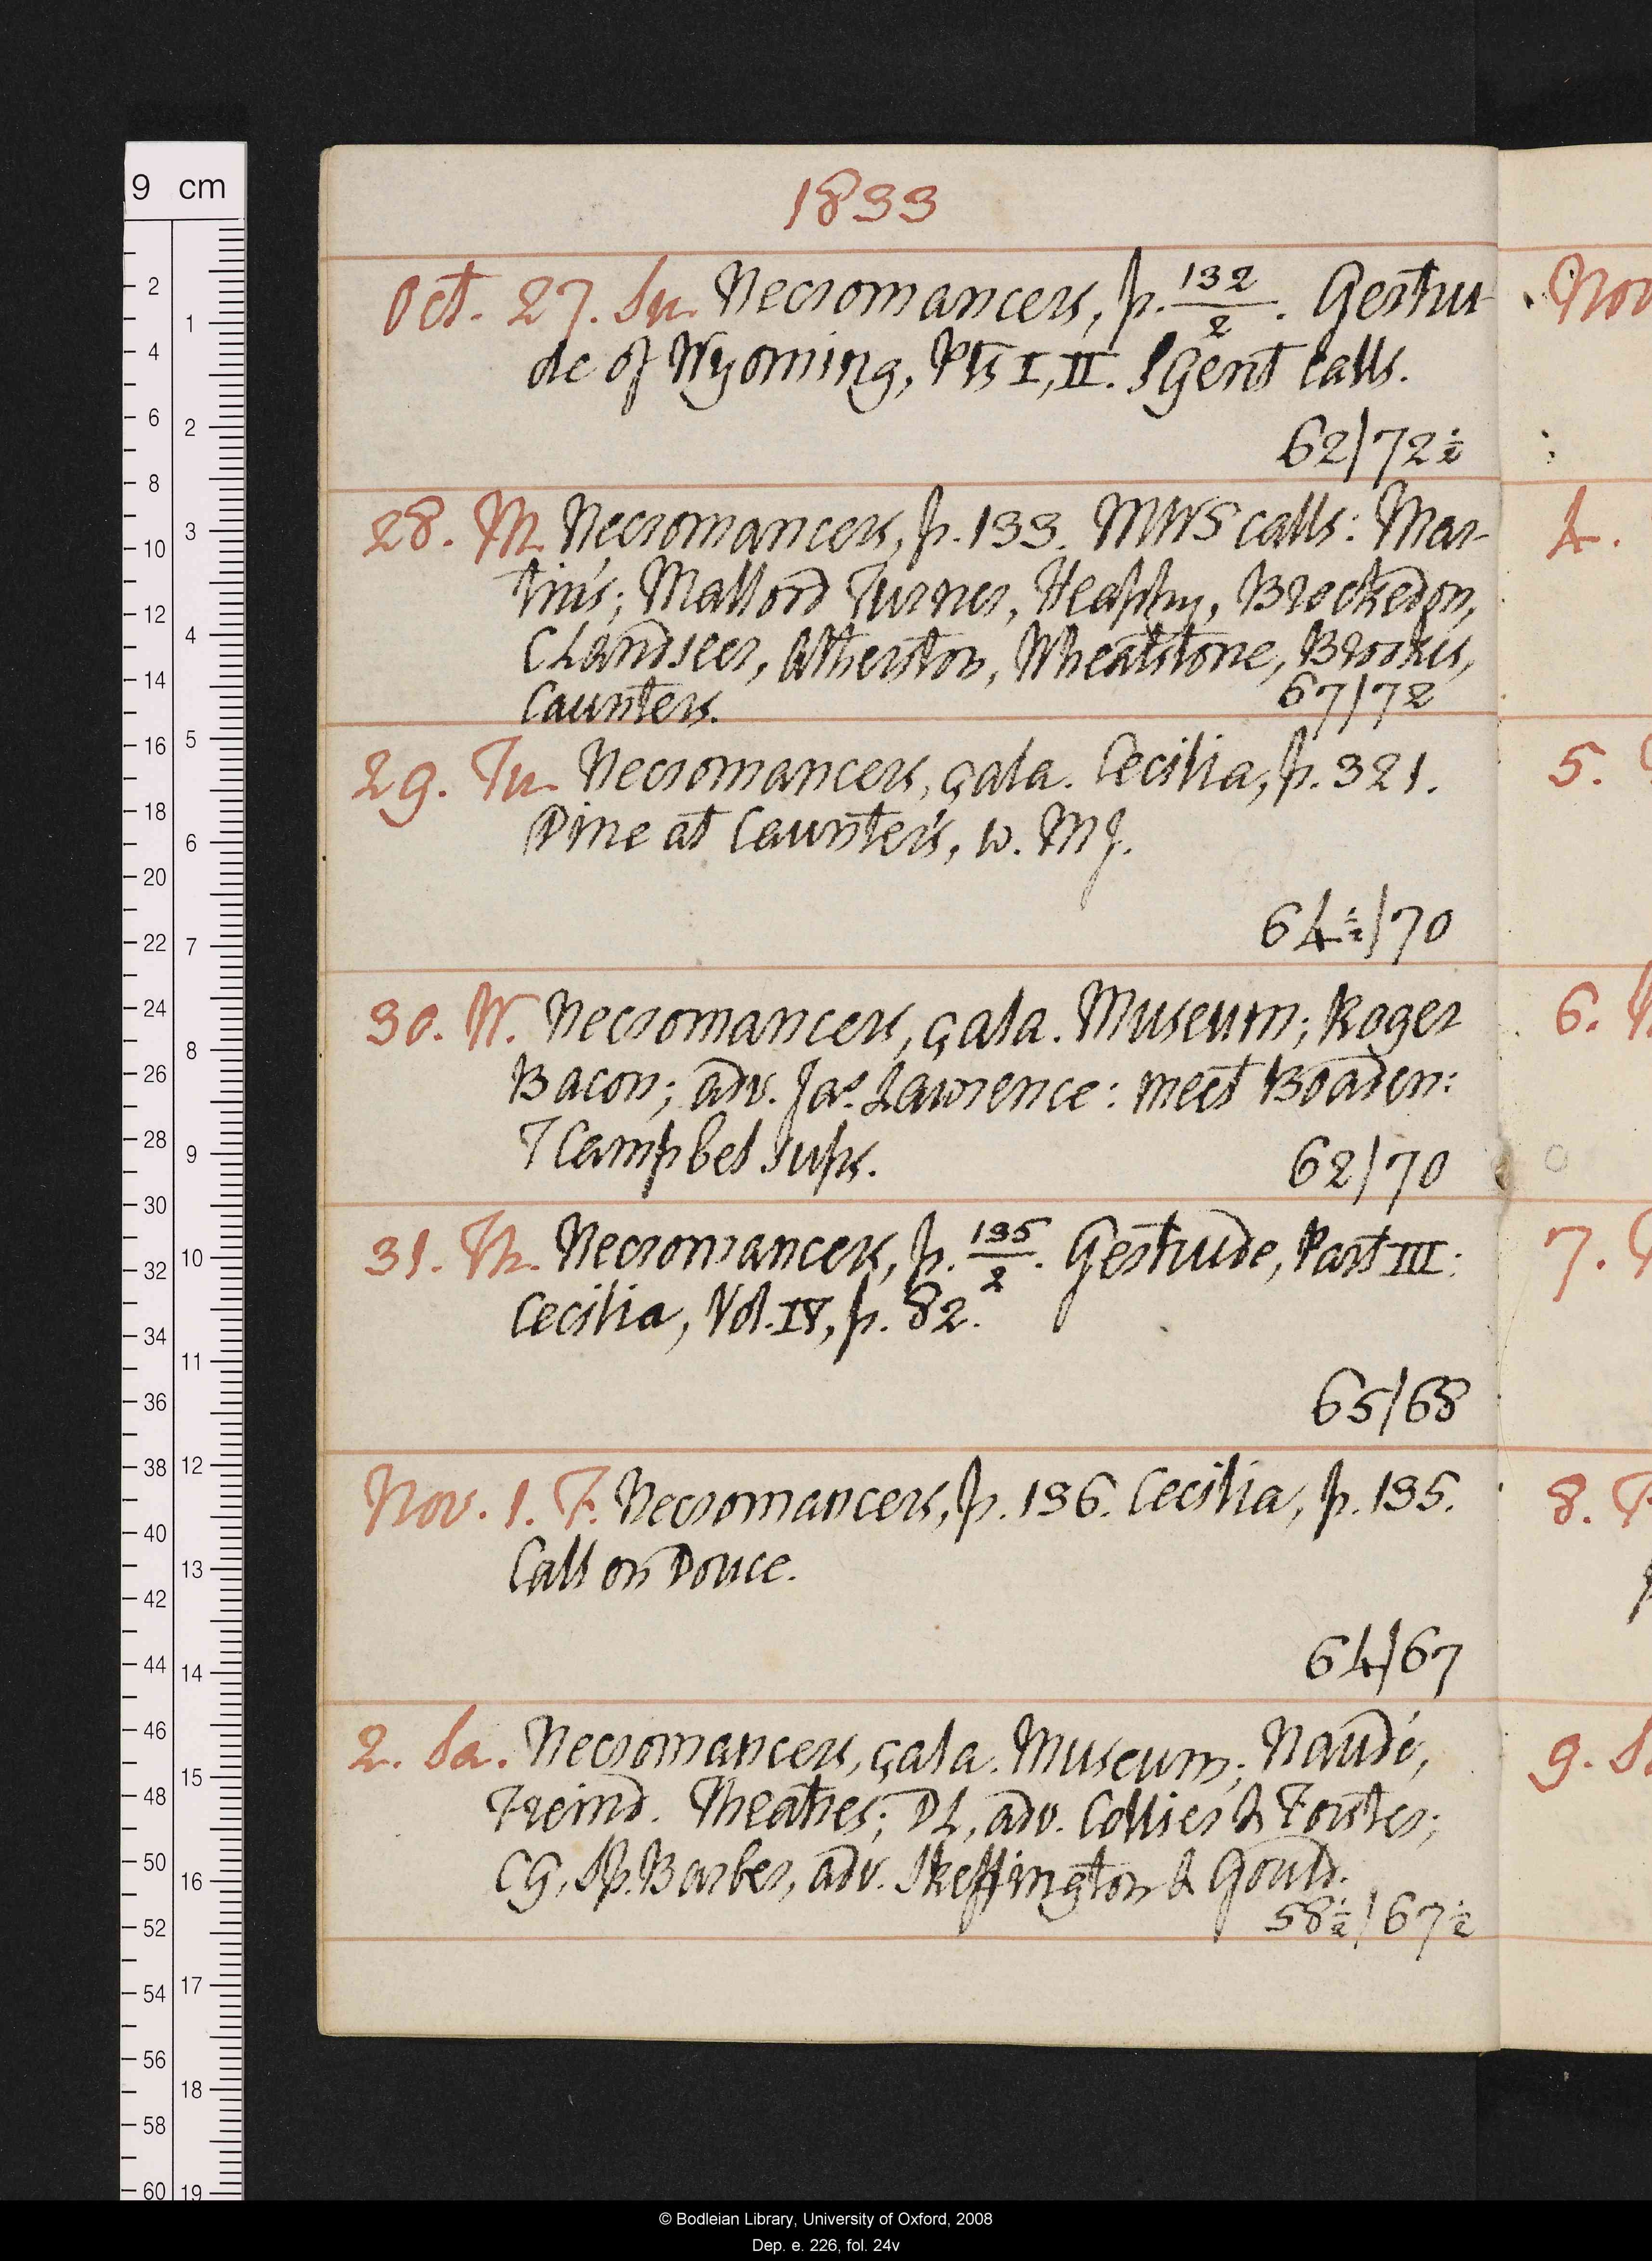 1833
Oct. 27. Su. Necromancers, p. 132/2. Gertru-
de of Wyoming, Pts I, II. S Gent calls.
62/72½
28. M. Necromancers, p. 133. MWS calls: Mar-
tin's; Mallord Turner, Heaphy, Brockedon,
C Landseer, Atherston, Wheatstone, Brookes,
Caunters.
67/72
29. Tu. Necromancers, çala. Cecilia, p. 321.
Dine at Caunter's, w. MJ.
64½/70
30. W. Necromancers, çala. Museum; Roger
Bacon; adv. Jas. Lawrence: meet Boaden:
T Campbel sups.
62/70
31. Th. Necromancers, p. 135/2. Gertrude, Part III:
Cecilia, Vol. IV, p. 82.
65/68
Nov. 1. F. Necromancers, p. 136. Cecilia, p. 195.
Call on Douce.
64/67
2. Sa. Necromancers, çala. Museum; Naudé,
Freind. Theatres; DL, adv. Collier & Forster;
CG, Sp. Barber, adv. Skeffington & Gould.
58½/67½
Nov
4.
5.
6.
7.
8. F
9. S
9 cm
2 4 6 8 10 12 14 16 18 20 22 24 26 28 30 32 34 36 38 40 42 44 46 48 50 52 54 56 58 60
1 2 3 4 5 6 7 8 9 10 11 12 13 14 15 16 17 18 19
© Bodleian Library, University of Oxford, 2008
Dep. e. 226, fol. 24v